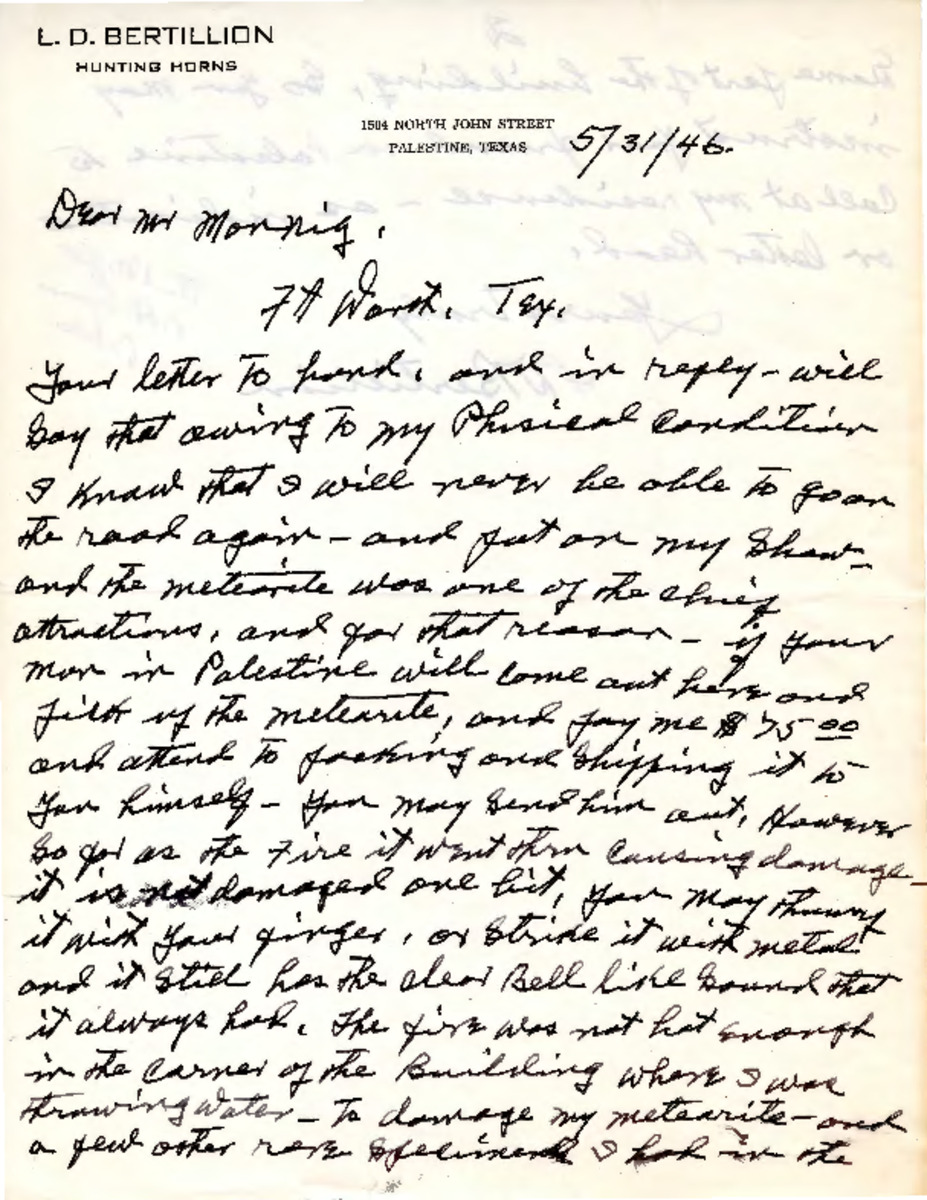 L. D. BERTILLION
HUNTING HORNS
1504 NORTH JOHN STREET
PALESTINE, TEXAS
5/31/46.
Dear Mr Monnig.
Ft Worth. Tex.
Your letter to hand. and in reply - will
Say that owing to my Phisical Condition
I Know that I will never be able to go on
the road again - and put on my Show -
and the meteorite was one of the chief
attractions, and for that reason - if your
man in Palestine will come out here and
pick up the meteorite, and pay me $75 00
and attend to packing and Shipping it to
you himself - you may Send him out, However
So far as the Fire it went thru Causing damage
it is not damaged one bit, you may
it with your finger, or Strike it with metal
and it Still has the clear Bell like Sound that
it always had. The fire was not hot enough
in the Corner of the Building where I was
throwing water - to damage my meteorite - and
a few other rare Specimens I had in the